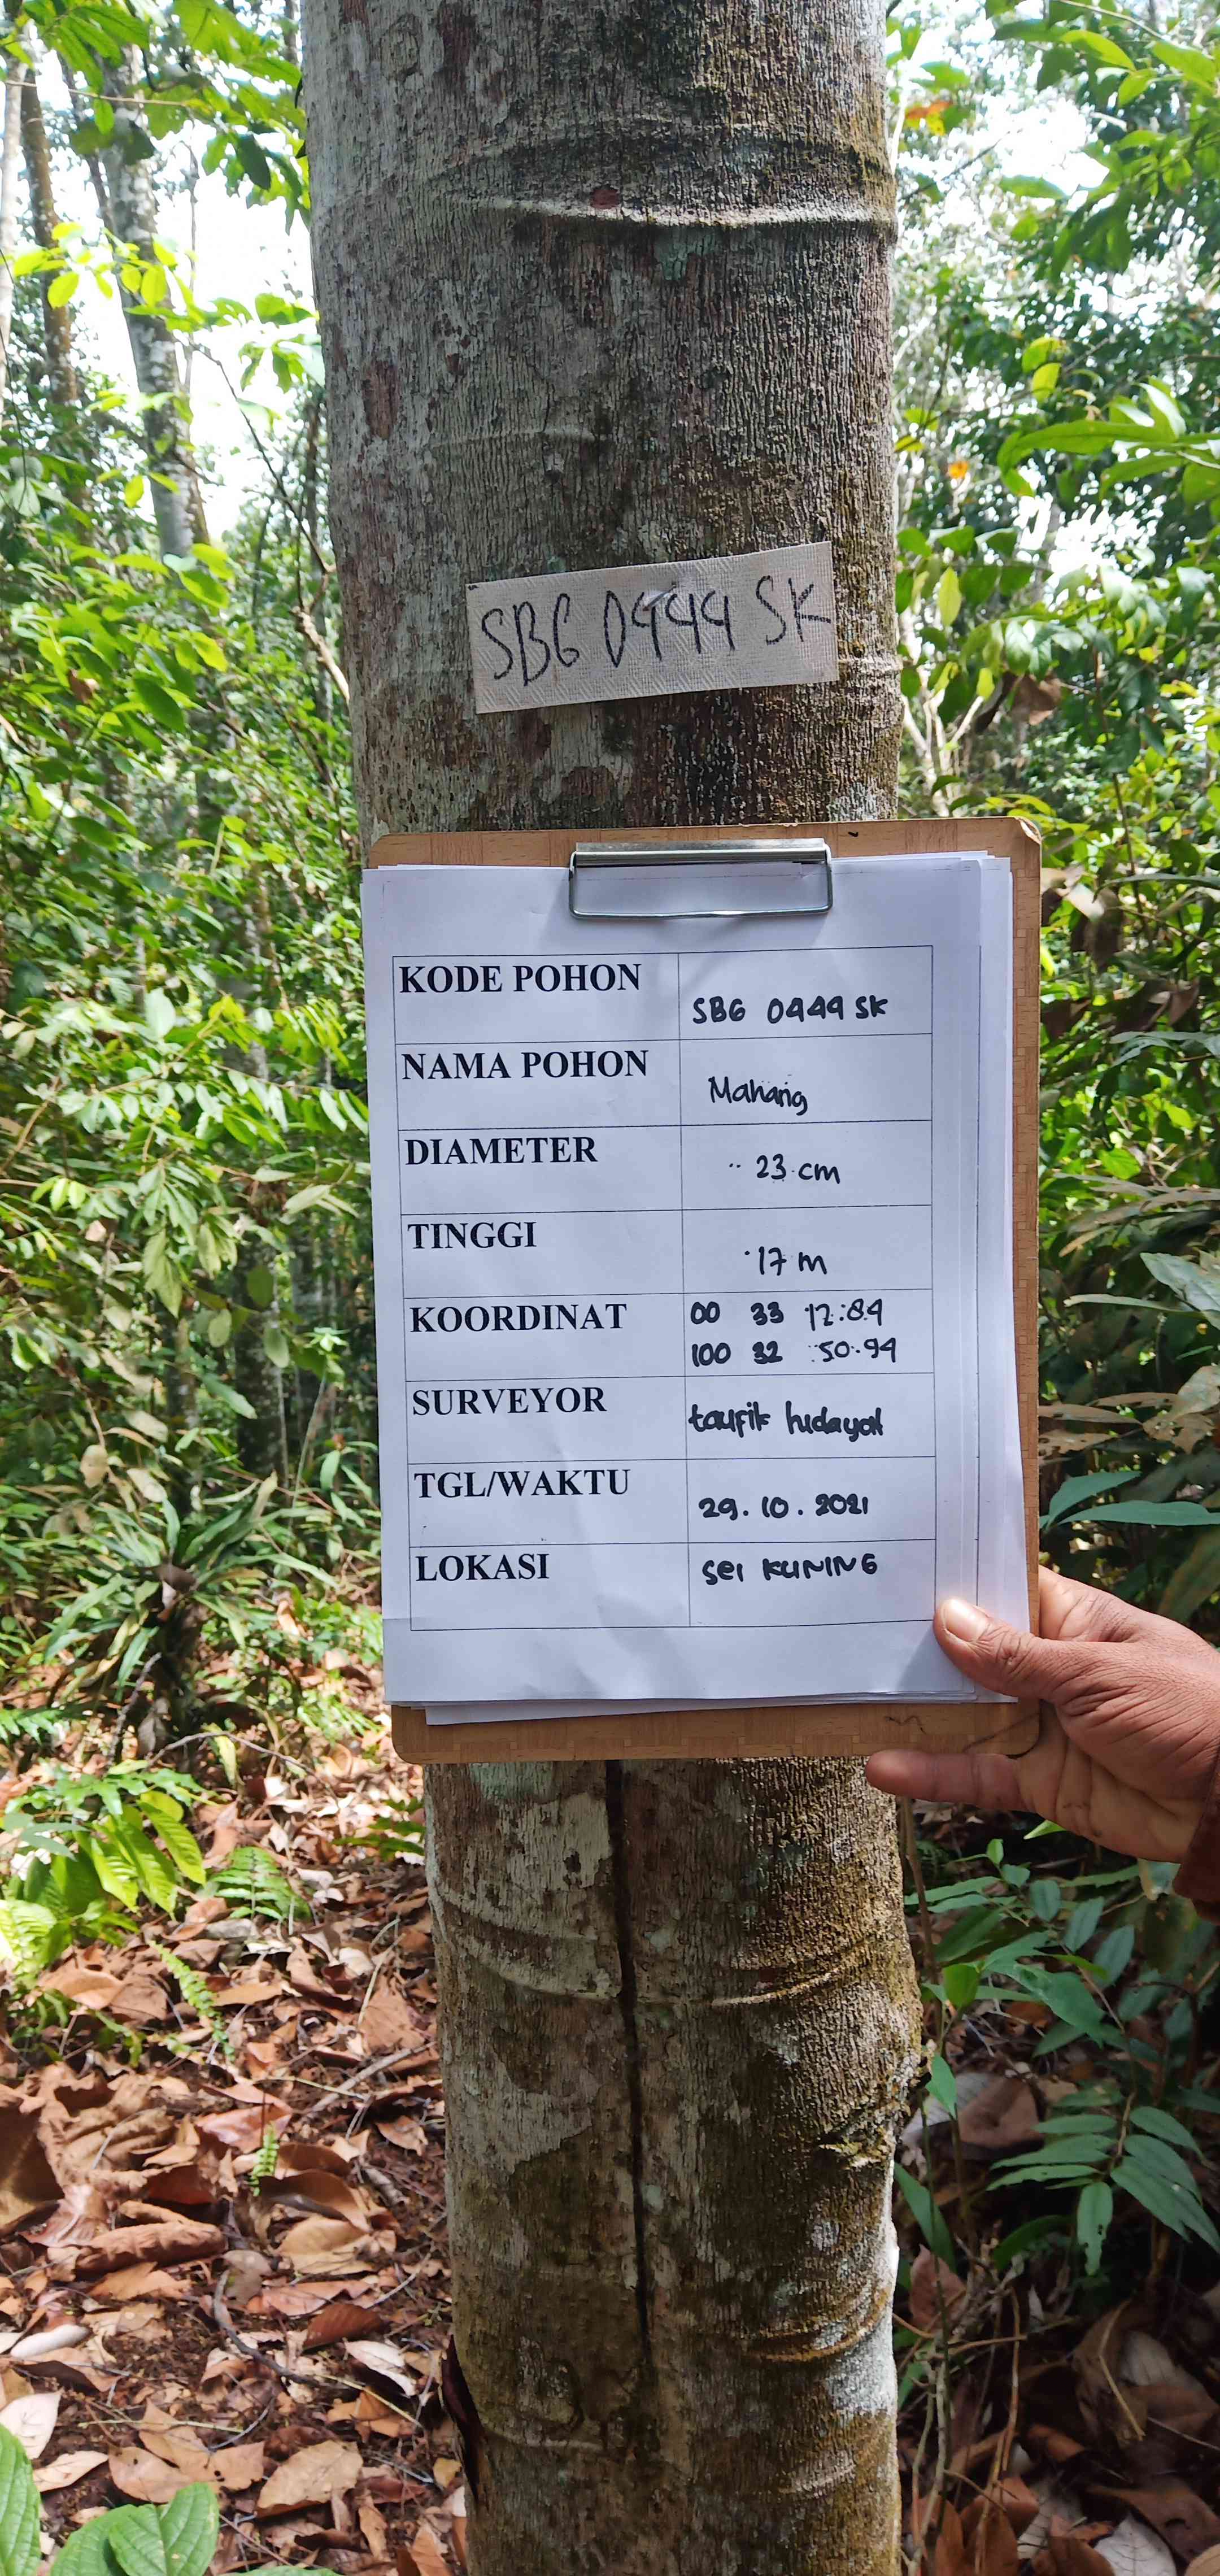 SBG 0444 SK
KODE POHON SBG 0444 SK
NAMA POHON Mahang
DIAMETER 23 cm
TINGGI 17 m
KOORDINAT 00 33 12:84
100 32 50.94
SURVEYOR taufik hidayat
TGL/WAKTU 29.10.2021
LOKASI sei KUNING